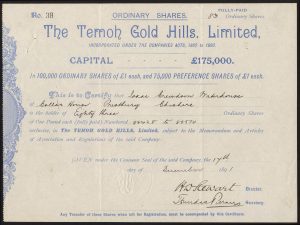 No. 38 ORDINARY SHARES. FULLY-PAID
83 Ordinary Shares.
The Temoh Gold Hills, Limited,
INCORPORATED UNDER THE COMPANIES ACTS, 1862 to 1890.
CAPITAL £175,000.
In 100,000 ORDINARY SHARES of £1 each, and 75,000 PREFERENCE SHARES of £1 each.
This is to Certify that Isaac Waterhouse
Prestbury Cheshire
is the holder of Eighty three Ordinary Shares
of One Pound each (fully paid) Numbered to
inclusive, in The TEMOH GOLD HILLS, Limited, subject to the Memorandum and Articles
of Association and Regulations of the said Company.
GIVEN under the Common Seal of the said Company the 17th
day of December 1891
H D Stewart Director.
Secretary.
Any Transfer of these Shares when left for Registration, must be accompanied by this Certificate.